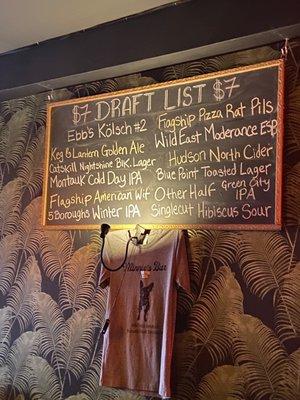 $7 DRAFT LIST $7
Ebb's Kölsch #2
Keg & Lantern Golden Ale
Catskill Nightshine Blk. Lager
Montauk Cold Day IPA
Flagship American Wit
5 Boroughs Winter IPA
Flagship Pizza Rat Pils
Wild East Moderance ESB
Hudson North Cider
Blue Point Toasted Lager
Other Half Green City IPA
Singlecut Hibiscus Sour
Minnie's Bar